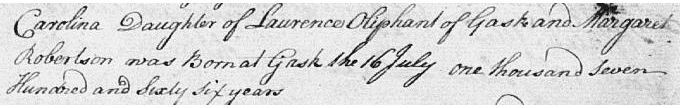 Carolina Daughter of Laurence Oliphant of Gask and Margaret
Robertson was Born at Gask the 16 July one thousand Seven
Hundred and Sixty Six years